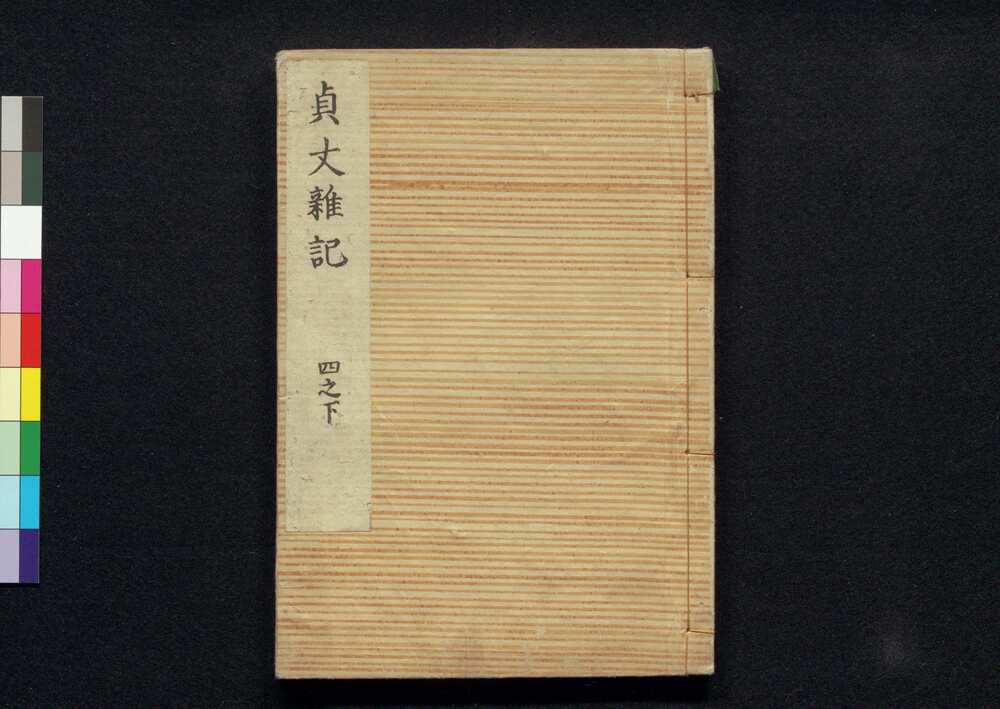 貞丈雜記
四之下